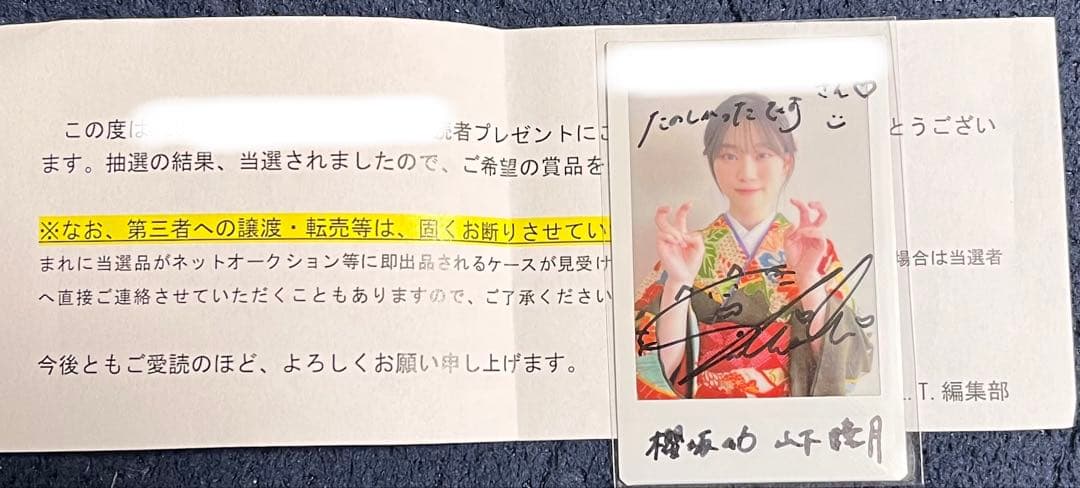 この度は
読者プレゼントにご
とうござい
ます。抽選の結果、当選されましたので、ご希望の賞品を
※なお、第三者への譲渡・転売等は、固くお断りさせてい
まれに当選品がネットオークション等に即出品されるケースが見受け
場合は当選者
へ直接ご連絡させていただくこともありますので、ご了承ください
今後ともご愛読のほど、よろしくお願い申し上げます。
L.T. 編集部
さん♡
たのしかったです
櫻坂46 山下瞳月